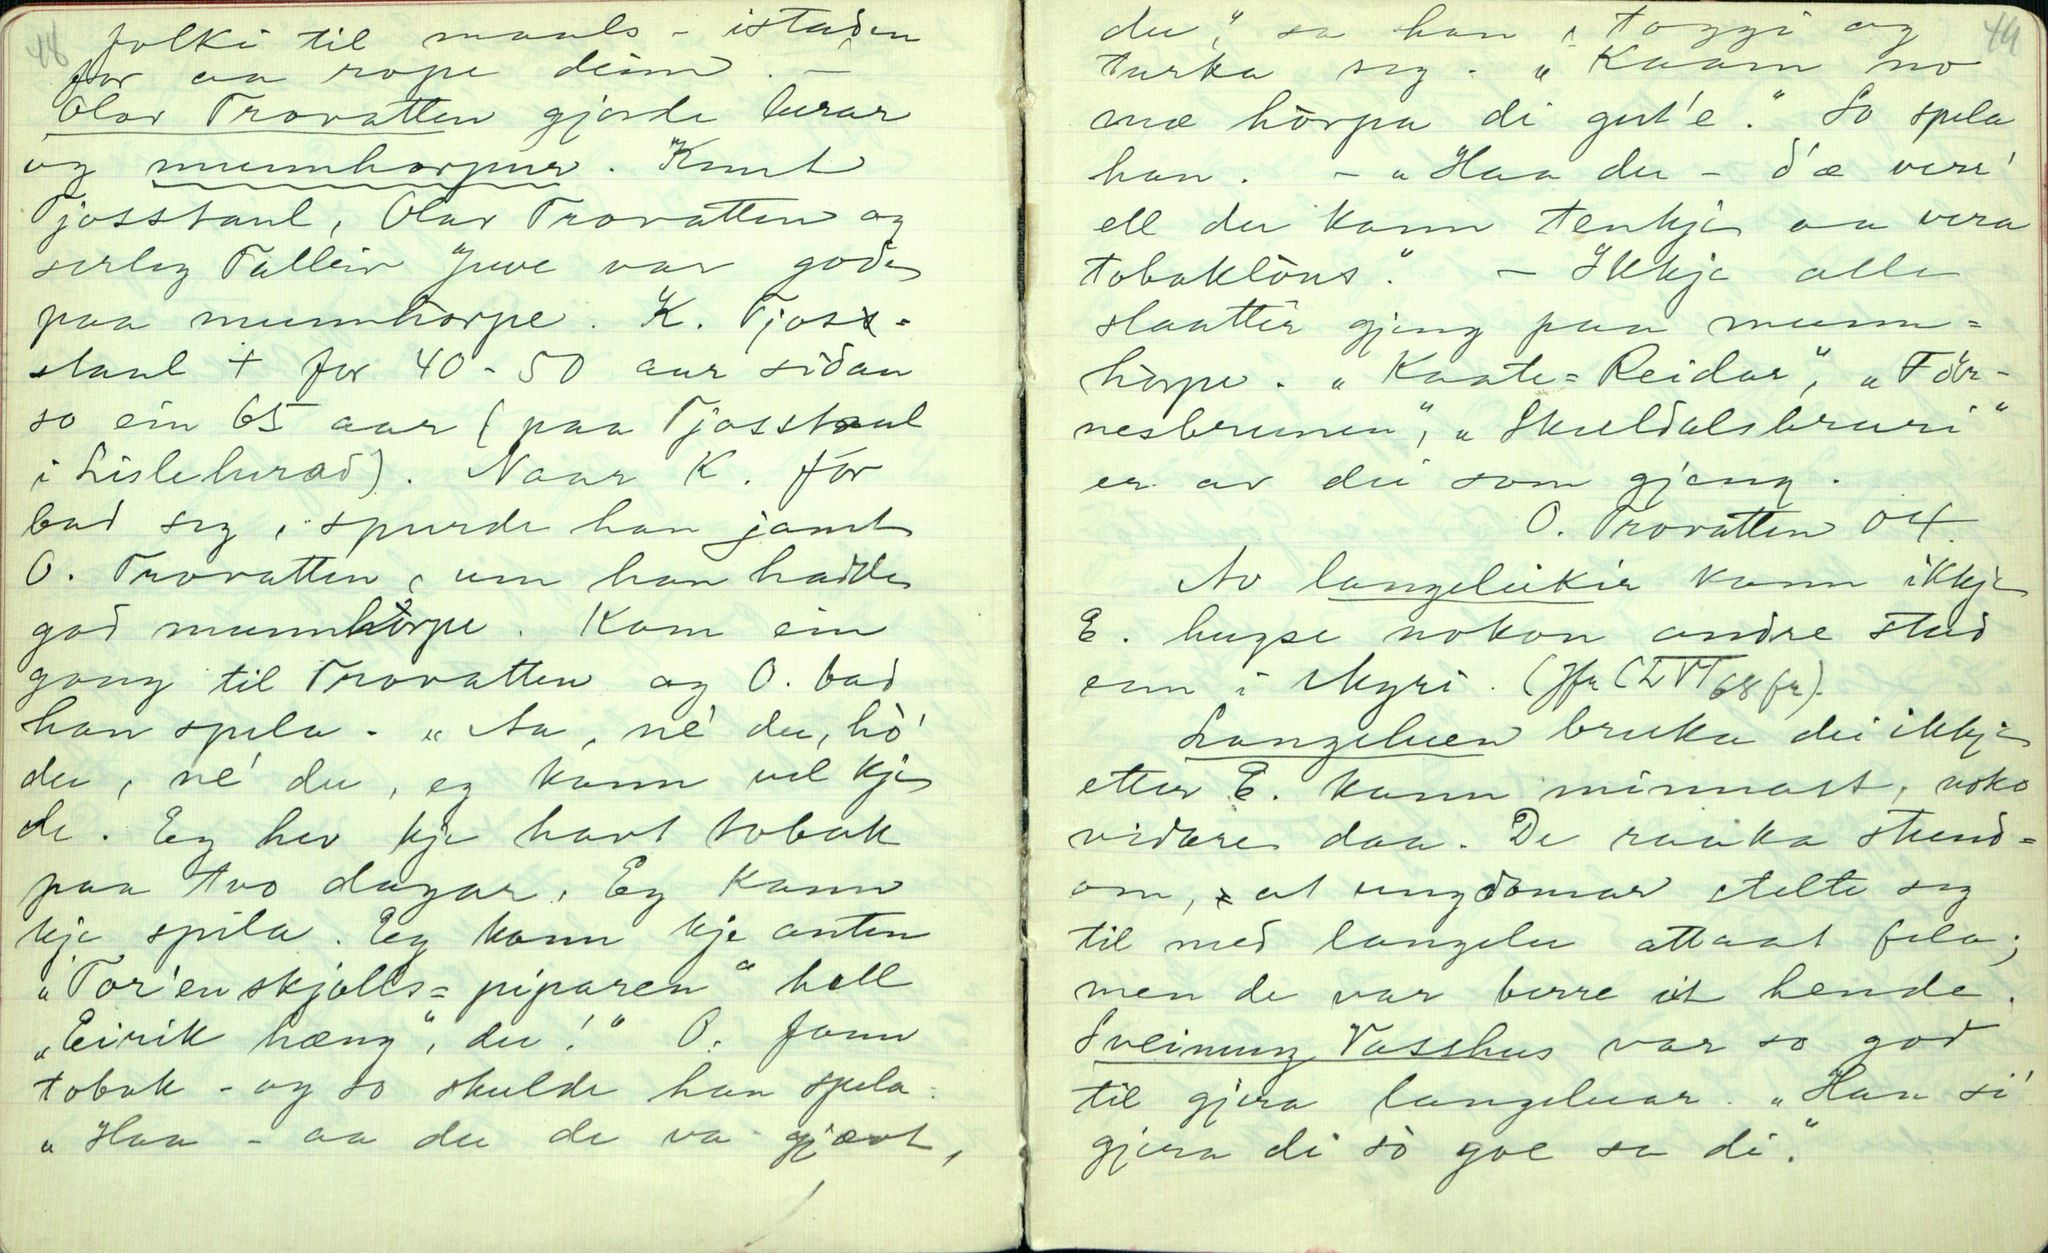 48
folki til maals - istaden
for aa rope deim. -
Olav Trovatten gjorde lurar
og munnhorpur. Knut
Tjosstaul, Olav Trovatten og
serleg Talleiv Juve var gode
paa munnhòrpe. K. Tjos-
staul + for 40-50 aar sidan
so ein 65 aar (paa Tjosstaul
i Lisleherad). Naar K. fór
bad seg, spurde han jamt
O. Trovatten, um han hadde
god munnhòrpe. Kom ein
gong til Trovatten og O. bad
han spela. "Aa, né du, hò'
du, né du, eg kann vel kje
de. Eg hev kje havt tobak
paa tvo dagar. Eg kann
kje spila. Eg kann kje anten
"Tor'enskjolls=piparen" hell
"Eirik hæng", du!" O. fann
tobak - og so skulde han spela.
"Haa - aa du de va gjævt,
49
du," sa han, toggi og
turka seg. "Kaam no
mæ hòrpa di gut'e." So spela
han. - "Haa du - d'æ verr'
ell du kann tenkje aa vera
tobaklòus". - Ikkje alle
slaattar gjeng paa munn=
hòrpe. "Kaate=Reidar", "Før-
nesbrunen", "Skuldalsbruri"
er av dei som gjeng.
O. Trovatten 04.
Av langeleikir kann ikkje
E. hugse nokon andre stad
enn i Myri. (Jfr CLVI 68 fr).
Langeluen bruka dei ikkje
etter E. kann minnast, noko
vidare daa. De raaka stund=
om, at ungdomar stelte seg
til med langelu attaat fela;
men de var berre eit hende.
Sveinung Vasshus var so god
til gjera langeluar. "Han si'
gjera di sò goe sa di."